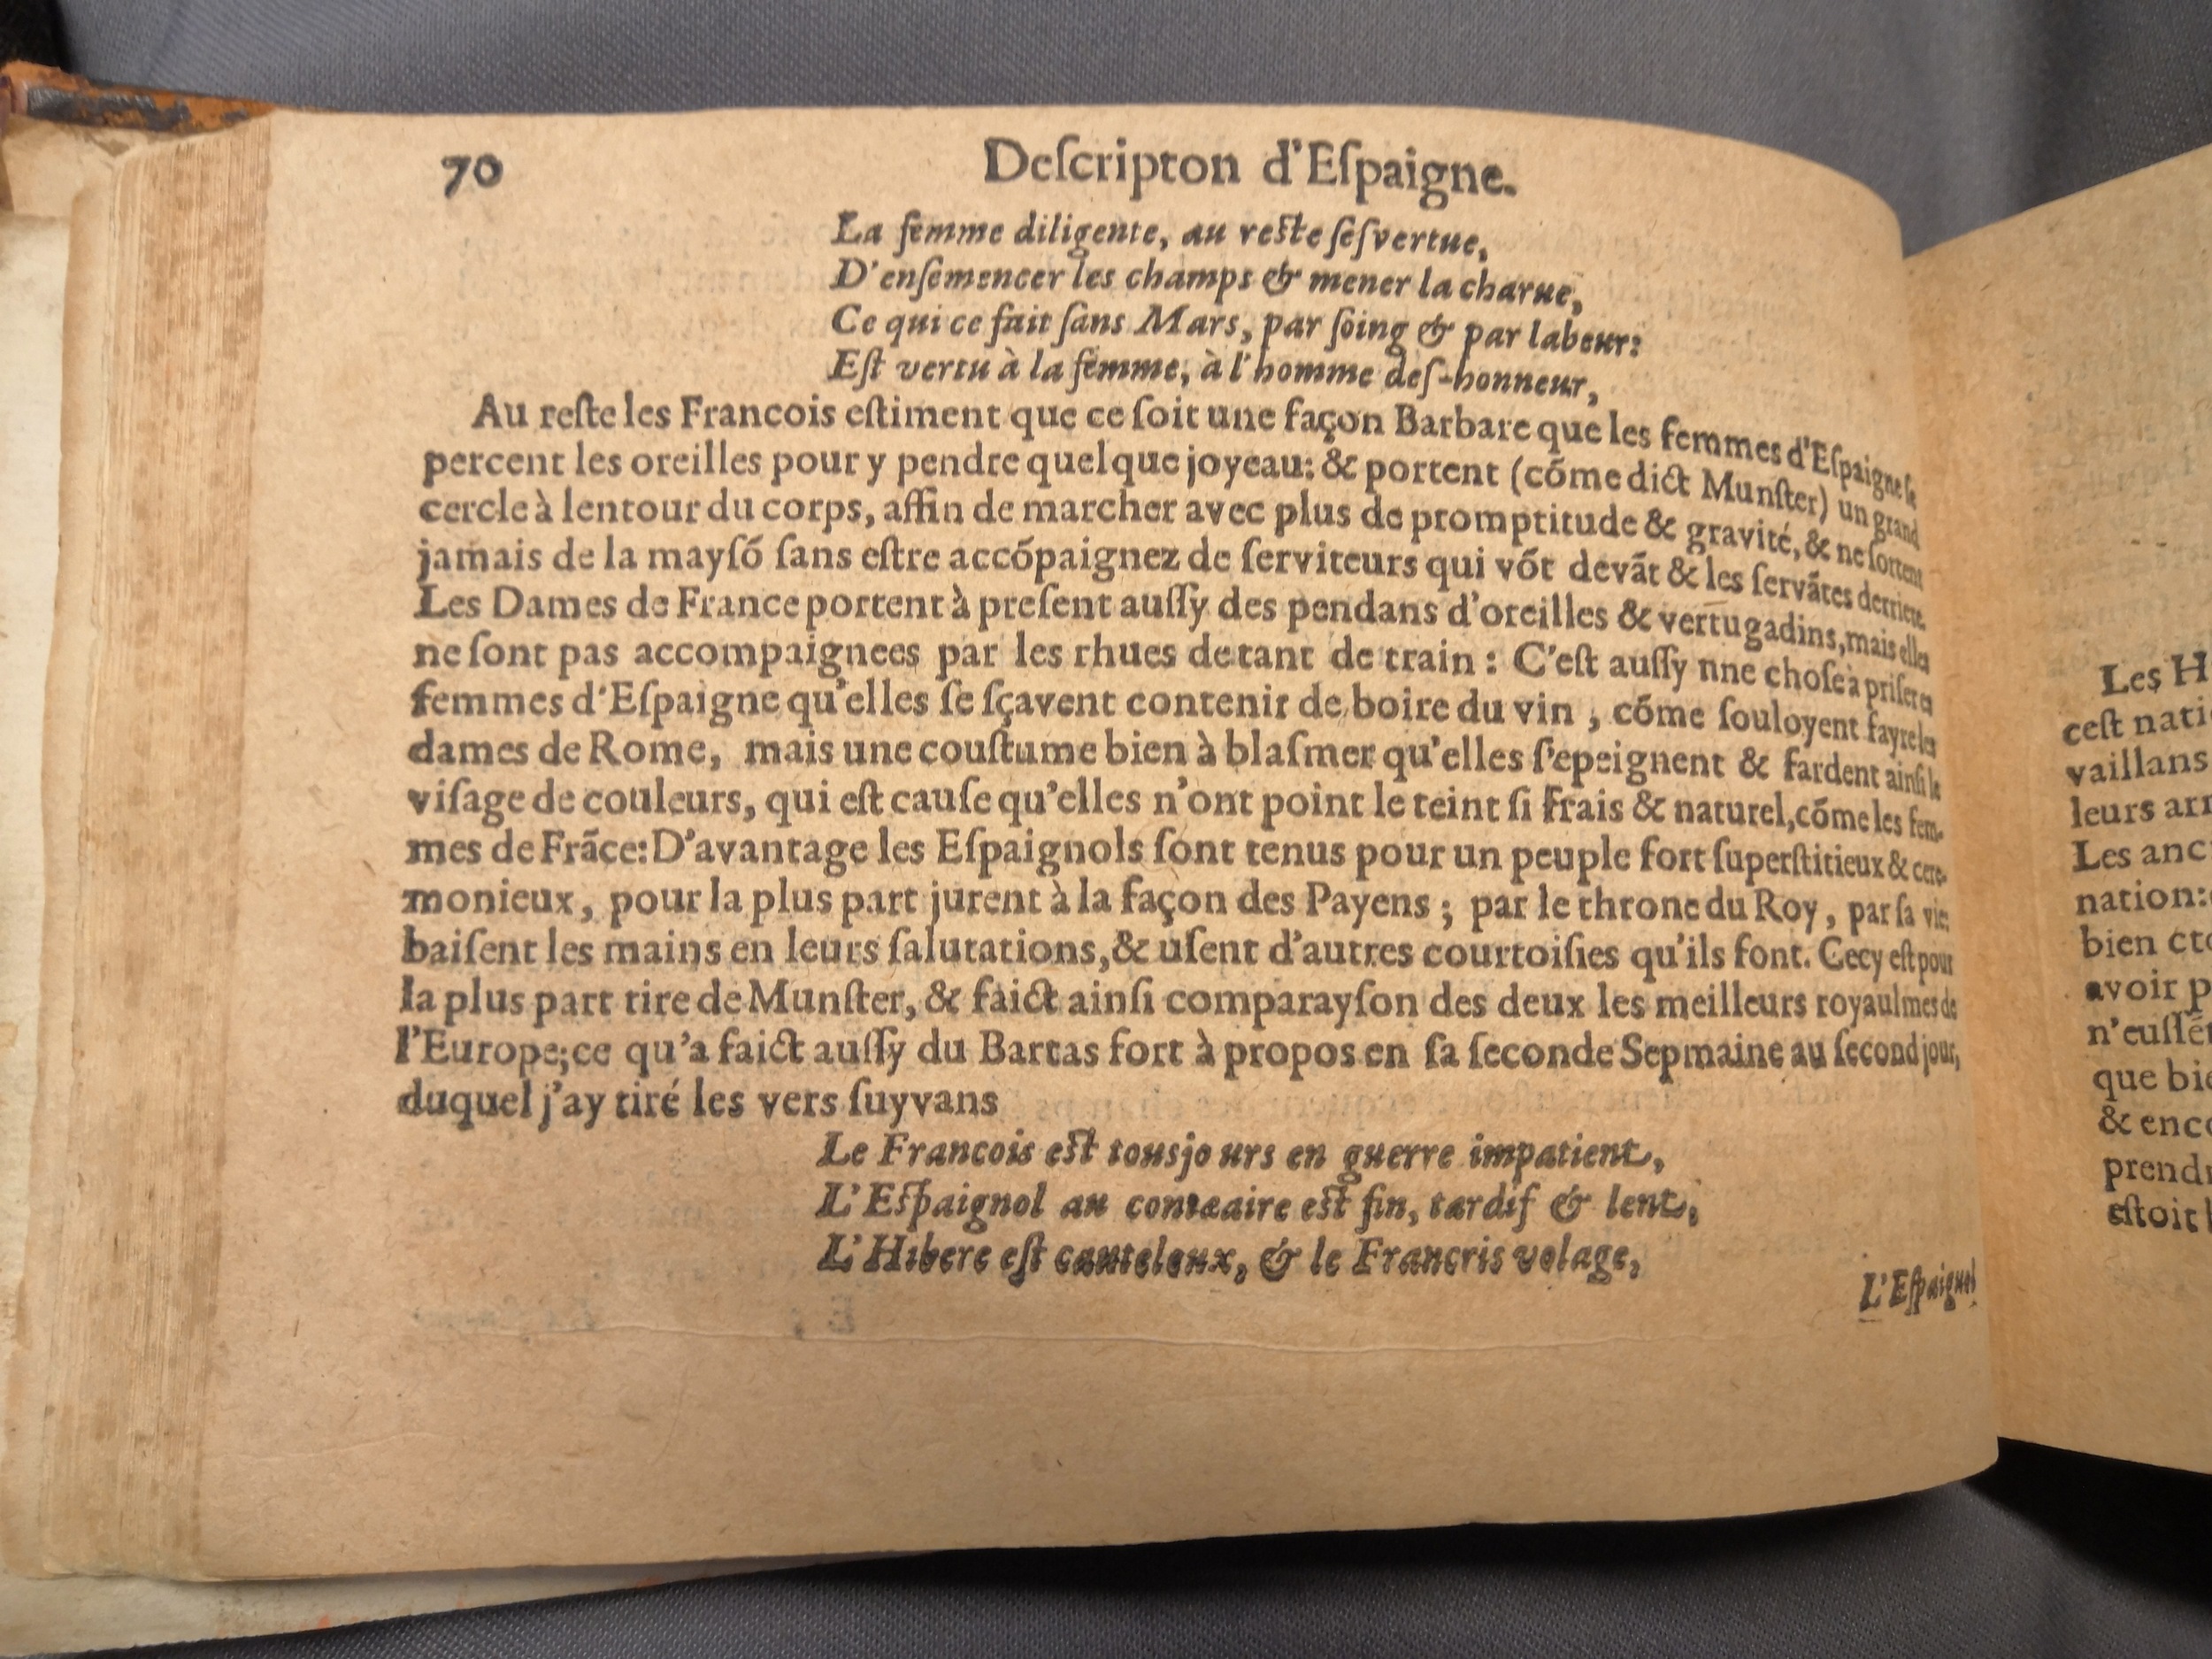 70 Deſcripton d'Eſpaigne.
La femme diligente, au reſte ſeſvertue,
D'enſemencer les champs & mener la charue,
Ce qui ce fait ſans Mars, par ſoing & par labeur:
Eſt vertu à la femme, à l'homme deſ-honneur,
Au reſte les Francois eſtiment que ce ſoit une façon Barbare que les femmes d'Eſpaigne ſe
percent les oreilles pour y pendre quelque joyeau: & portent (cõme dict Munſter) un grand
cercle à lentour du corps, affin de marcher avec plus de promptitude & gravité, & ne ſortent
jamais de la mayſõ ſans eſtre accõpaignez de ſerviteurs qui võt devãt & les ſervãtes derriere.
Les Dames de France portent à preſent auſſy des pendans d'oreilles & vertugadins, mais elles
ne ſont pas accompaignees par les rhues de tant de train : C'eſt auſſy nne choſe à priſer es
femmes d'Eſpaigne qu'elles ſe ſçavent contenir de boire du vin , cõme ſouloyent fayre les
dames de Rome, mais une couſtume bien à blaſmer qu'elles ſ'epeignent & fardent ainſi le
viſage de couleurs, qui eſt cauſe qu'elles n'ont point le teint ſi frais & naturel, cõme les fem-
mes de Frãce: D'avantage les Eſpaignols ſont tenus pour un peuple fort ſuperſtitieux & cere-
monieux, pour la plus part jurent à la façon des Payens ; par le throne du Roy, par ſa vie:
baiſent les mains en leurs ſalutations, & uſent d'autres courtoiſies qu'ils font. Cecy eſt pour
la plus part tire de Munſter, & faict ainſi comparayſon des deux les meilleurs royaulmes de
l'Europe; ce qu'a faict auſſy du Bartas fort à propos en ſa ſeconde Sepmaine au ſecond jour,
duquel j'ay tiré les vers ſuyvans
Le Francois eſt tousjo urs en guerre impatient,
L'Eſpaignol au conteaire eſt fin, tardif & lent,
L'Hibere eſt cauteleux, & le Francris volage,
L'Eſpaignol
Les H
ceſt nati
vaillans
leurs arr
Les anc
nation:
bien cto
avoir p
n'euſſẽ
que bie
& enco
prendr
eſtoit